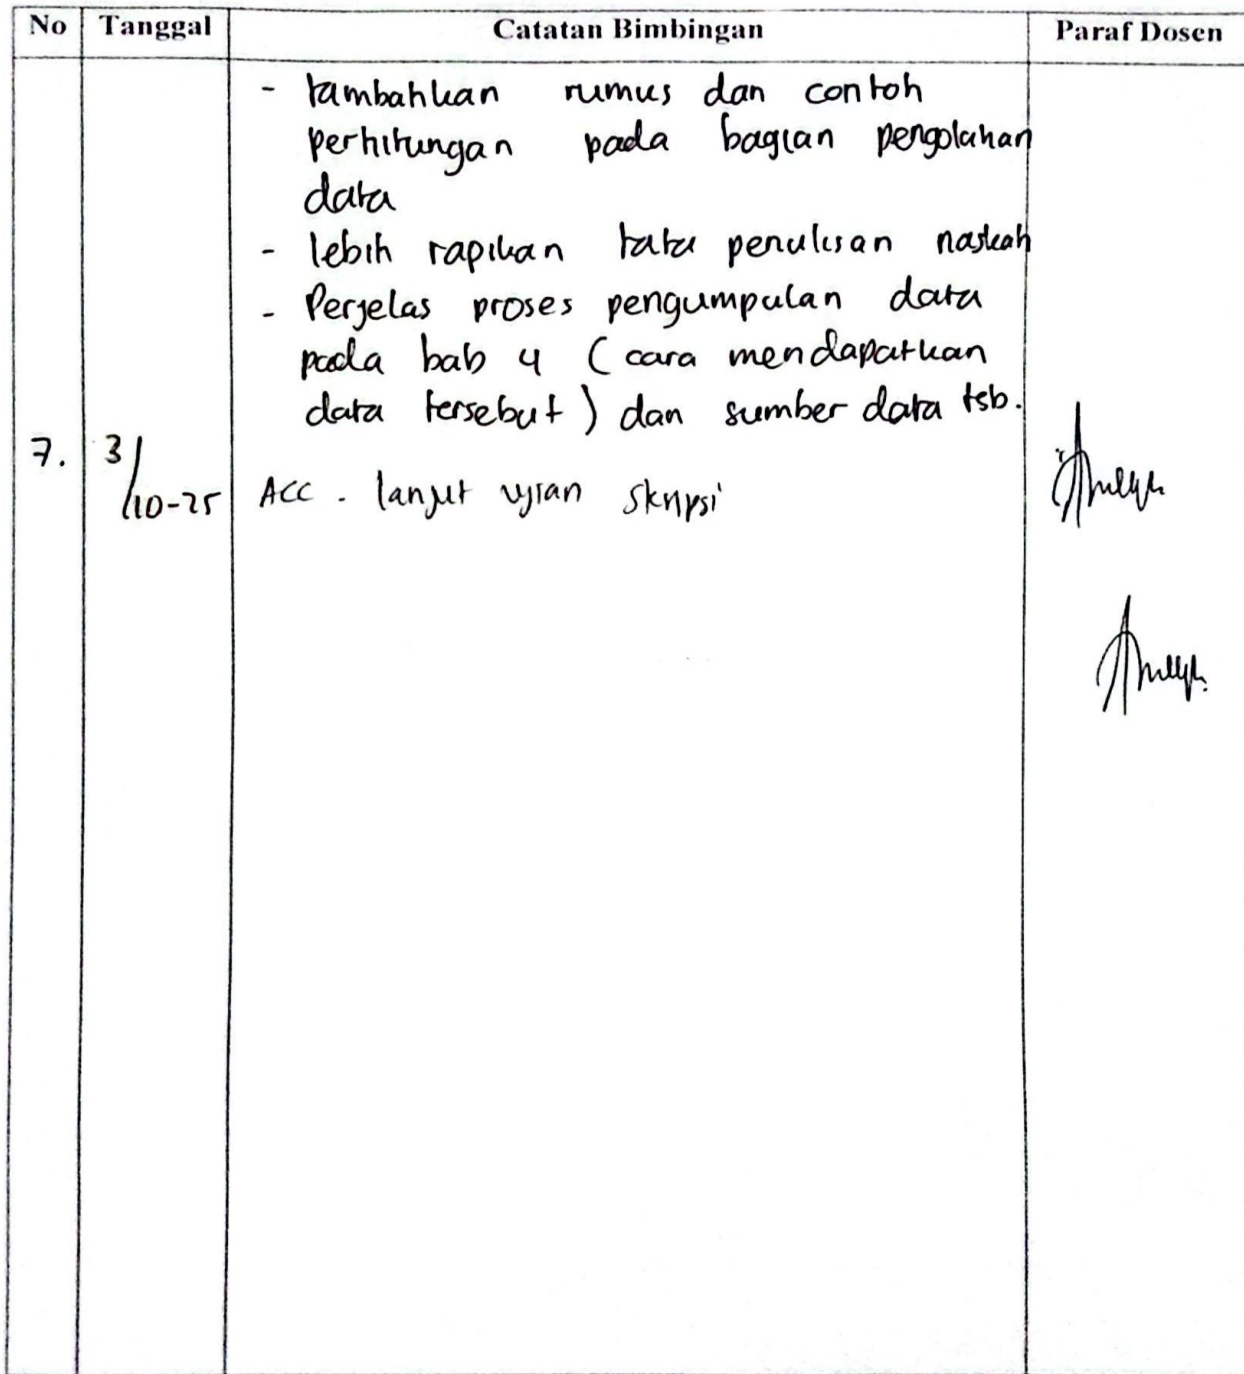 No Tanggal Catatan Bimbingan Paraf Dosen
- tambahkan rumus dan contoh
perhitungan pada bagian pengolahan
data
- lebih rapikan tata penulisan naskah
- Perjelas proses pengumpulan data
pada bab 4 (cara mendapatkan
data tersebut) dan sumber data tsb.
7. 3/10-25 ACC. lanjut ujian skripsi